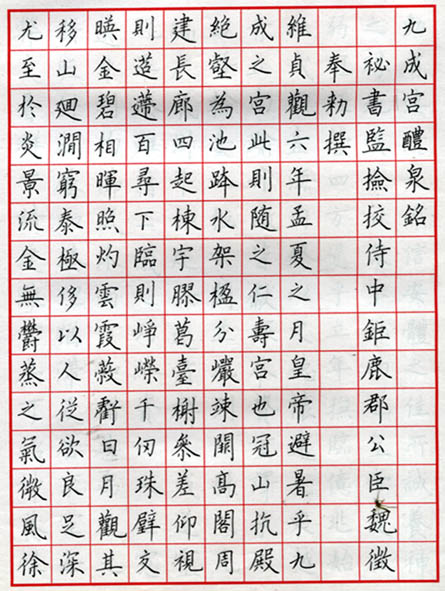 九成宮醴泉銘
祕書監撿挍侍中鉅鹿郡公臣魏徵
奉勅撰
維貞觀六年孟夏之月皇帝避暑乎九
成之宮此則随之仁壽宮也冠山抗殿
絶壑為池跨水架楹分巖竦闕髙閣周
建長廊四起棟宇膠葛臺榭叅差仰視
則迢遰百尋下臨則崢嶸千仞珠璧交
暎金碧相暉照灼雲霞蔽虧日月觀其
移山廻澗窮泰極侈以人従欲良足深
尤至於炎景流金無欝蒸之氣微風徐